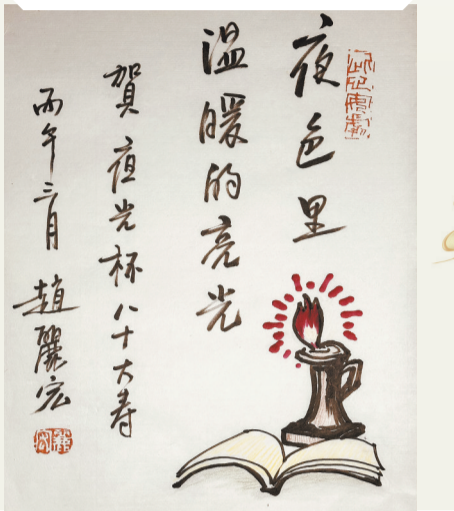 夜色里
温暖的亮光
賀夜光杯八十大寿
丙午三月
趙麗宏